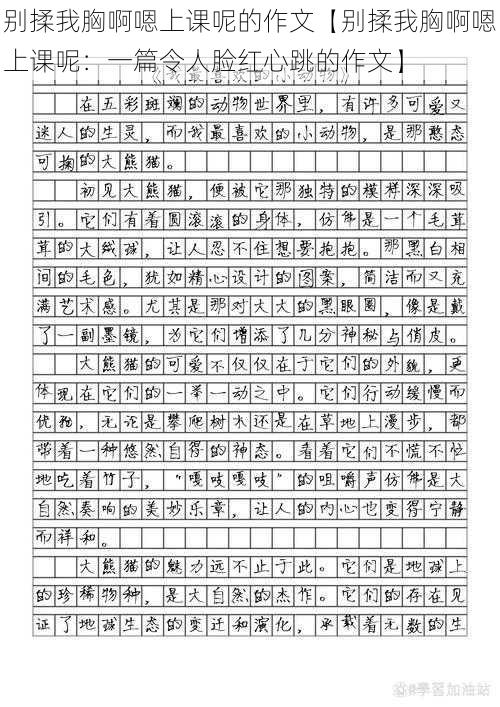 别揉我胸啊嗯上课呢的作文【别揉我胸啊嗯
上课呢：一篇令人脸红心跳的作文】
《我最喜欢的小动物》
在五彩斑斓的动物世界里，有许多可爱又
迷人的生灵，而我最喜欢的小动物，是那憨态
可掬的大熊猫。
初见大熊猫，便被它那独特的模样深深吸
引。它们有着圆滚滚的身体，仿佛是一个毛茸
茸的大绒球，让人忍不住想要抱抱。那黑白相
间的毛色，犹如精心设计的图案，简洁而又充
满艺术感。尤其是那对大大的黑眼圈，像是戴
了一副墨镜，为它们增添了几分神秘与俏皮。
大熊猫的可爱不仅仅在于它们的外貌，更
体现在它们的一举一动之中。它们行动缓慢而
优雅，无论是攀爬树木还是在草地上漫步，都
带着一种悠然自得的神态。看着它们不慌不忙
地吃着竹子，“嘎吱嘎吱”的咀嚼声仿佛是大
自然奏响的美妙乐章，让人的内心也变得宁静
而祥和。
大熊猫的魅力远不止于此。它们是地球上
的珍稀物种，是大自然的杰作。它们的存在见
证了地球生态的变迁和演化，承载着无数的生
學習加油站